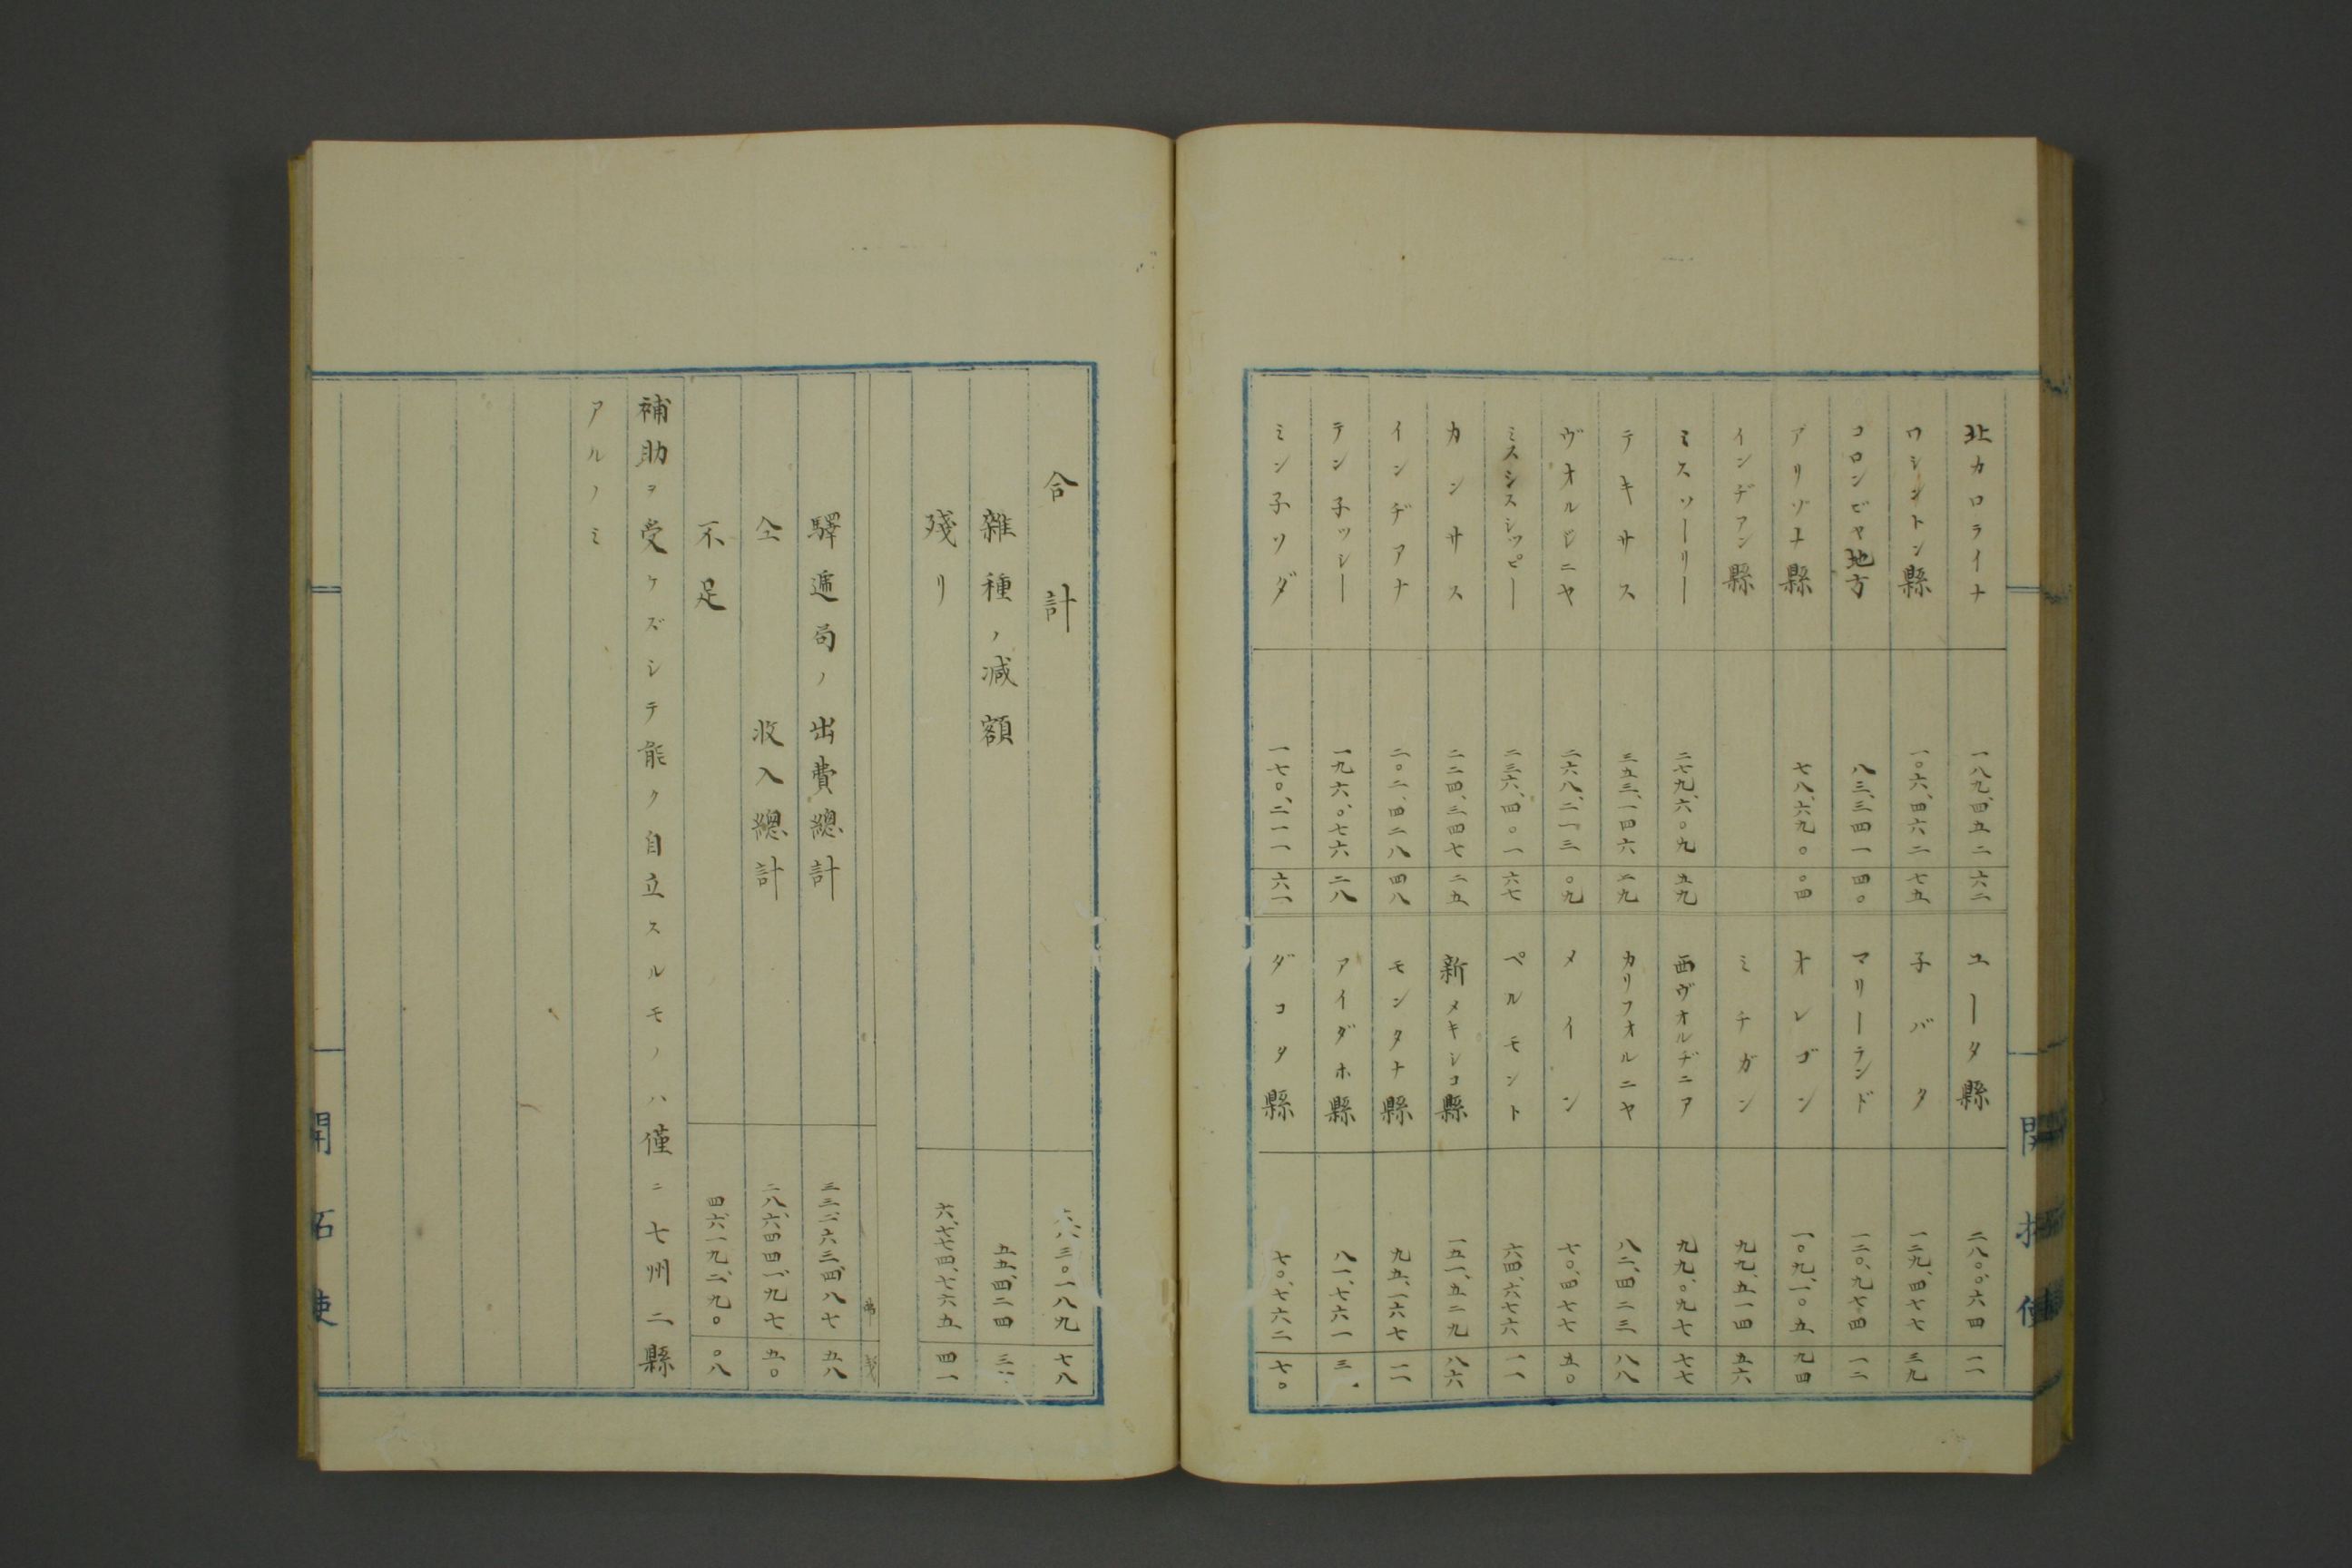 北カロライナ 一八九、四五二 六二 ユータ縣 二八〇、〇六四 一一
ワシントン縣 一〇六、四六二 七五 子バタ 一二九、四七七 三九
コロンビヤ地方 八三、三四一 四〇 マリーランド 一二〇、九七四 一二
アリゾナ縣 七八、六九〇 〇四 オレゴン 一〇九、一〇五 九四
インヂアン縣 ミチガン 九九、五一四 五六
ミスソーリー 二七九、六〇九 五九 西ヴオルヂニア 九九、〇九七 七七
テキサス 三五三、一四六 二九 カリフオルニヤ 八二、四二三 八八
ヴオルジニヤ 二六八、二一三 〇九 メイン 七〇、四七七 五〇
ミスシスシツピー 二三六、四〇一 六七 ペルモント 六四、六七六 一一
カンサス 二二四、三四七 二五 新メキシコ縣 一五一、五二九 八六
インヂアナ 二〇二、四二八 四八 モンタナ縣 九五、一六七 一一
テン子ツシー 一九六、〇七六 二八 アイダホ縣 八一、七六一 三
ミン子ソダ 一七〇、二一一 六一 ダコタ縣 七〇、七六二 七〇
開拓使
合計 三〇一八九 七八
雜種ノ減額 五五、四二四
殘リ 六、七七四、七六五 四一
驛遞局ノ出費總計 三三、二六三、四八七 五八
仝 收入總計 二八、六四四、一九七 五〇
不足 四、六一九、二九〇 〇八
補助ヲ受ケズシテ能ク自立スルモノハ僅ニ七州二縣
アルノミ
開拓使